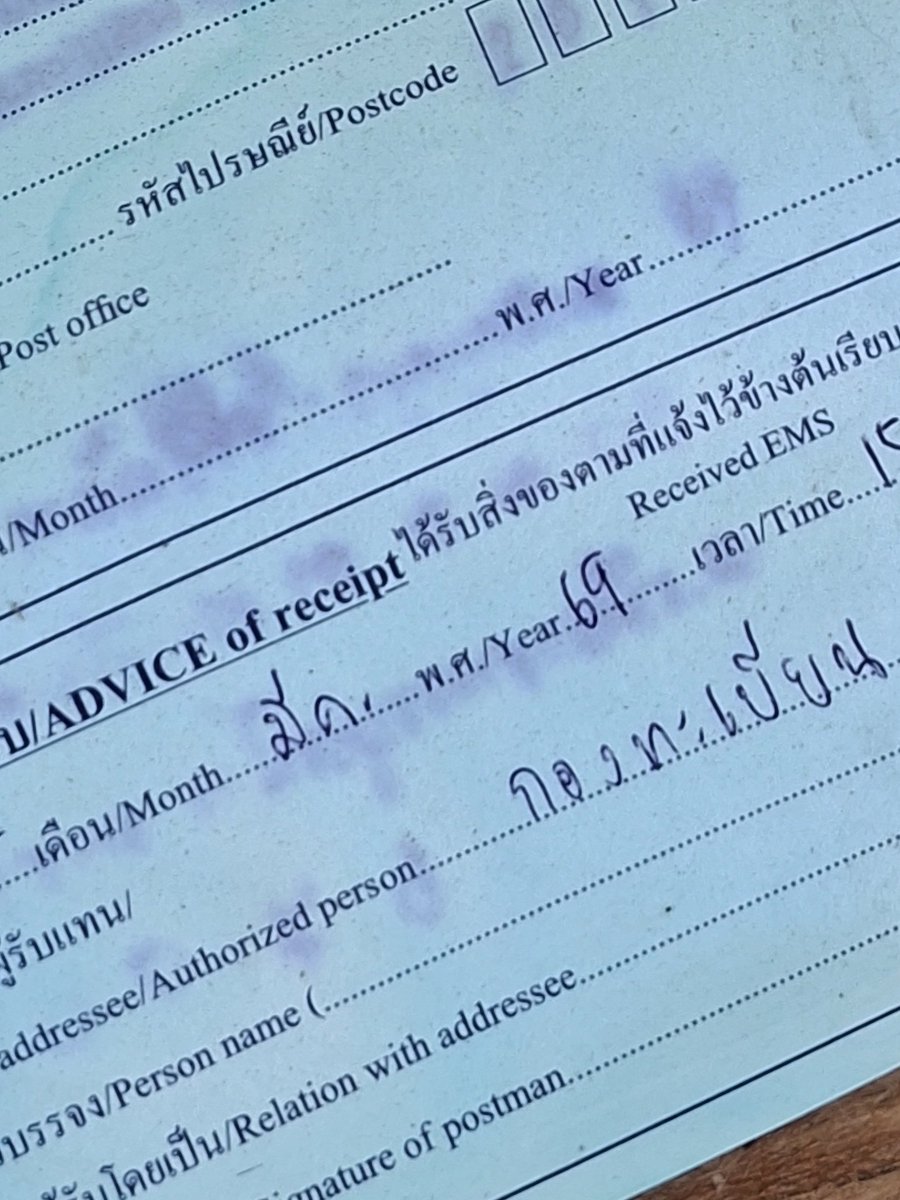 รหัสไปรษณีย์/Postcode
Post office
/Month พ.ศ./Year
บ/ADVICE of receipt ได้รับสิ่งของตามที่แจ้งไว้ข้างต้นเรียบ
Received EMS
เดือน/Month มี.ค. พ.ศ./Year 69 เวลา/Time 15
ผู้รับแทน/
addressee/Authorized person กองทะเบียน
บรรจง/Person name (
รับโดยเป็น/Relation with addressee
signature of postman